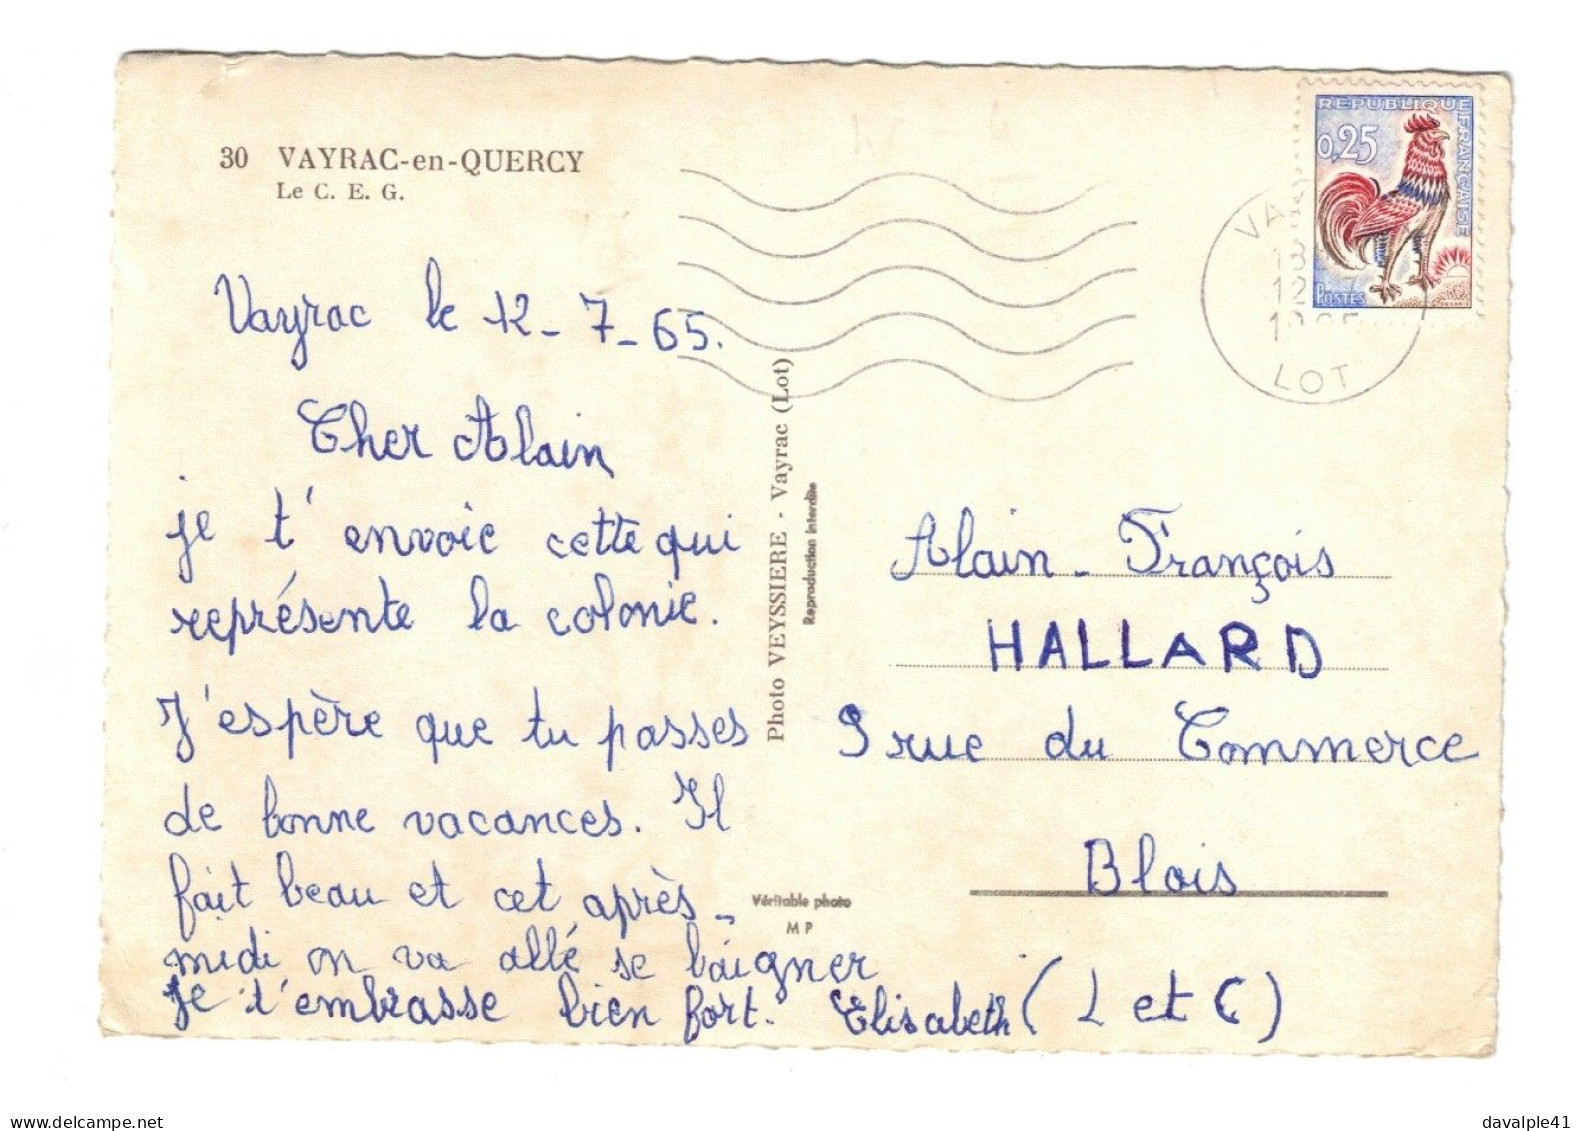 30 VAYRAC-en-QUERCY
Le C. E. G.
Vayrac le 12-7-65.
Cher Alain
je t'envoie cette qui
représente la colonie.
J'espère que tu passes
de bonne vacances. Il
fait beau et cet après-
midi on va allé se baigner
Je t'embrasse bien fort. Elisabeth
Photo VEYSSIERE - Vayrac (Lot)
Reproduction interdite
Véritable photo
M P
REPUBLIQUE FRANÇAISE
0,25
POSTES
LOT
Alain-François
HALLARD
9 rue du Commerce
Blois
(L et C)
davalple41